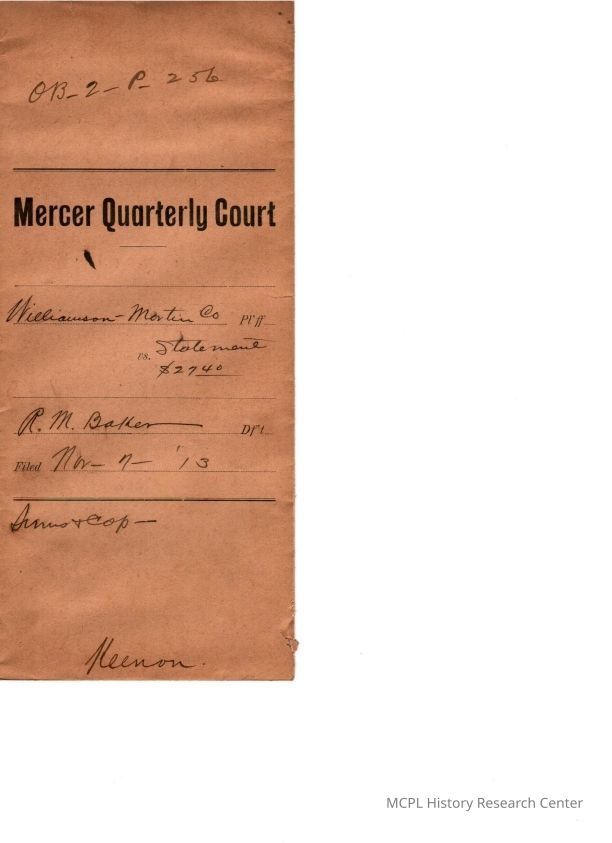 OB-2-P-256
Mercer Quarterly Court
Williamson-Martin Co Pl'ff
vs. Statement
$27 40
R. M. Baker Df't
Filed Nov-7-'13
Sums & Cop-
Keenon.
MCPL History Research Center